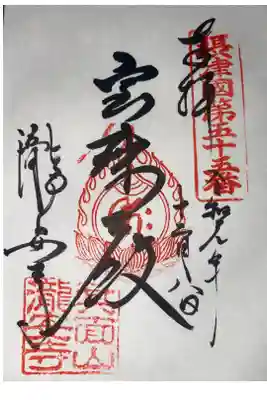 奉拝
摂津国第五十五番
令和元年十二月八日
宝珠殿
瀧安寺
箕面山
瀧安寺